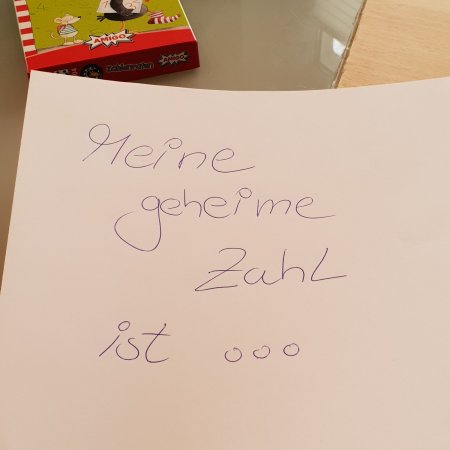 AMIGO
Zahlenraten
AMIGO
Meine
geheime
Zahl
ist ooo